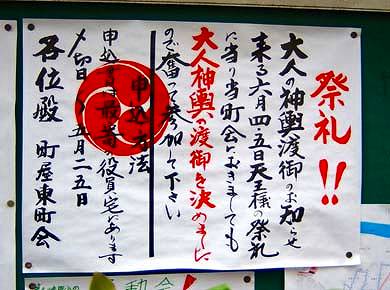 祭礼!!
大人の神輿渡御のお知らせ
来る六月四・五日天王様の祭礼
に当り当町会におきましても
大人神輿の渡御を決めました
ので奮って参加して下さい
申込方法
申込書は最寄の役員宅にあります
〆切日 五月二五日
各位殿 町屋東町会
動会